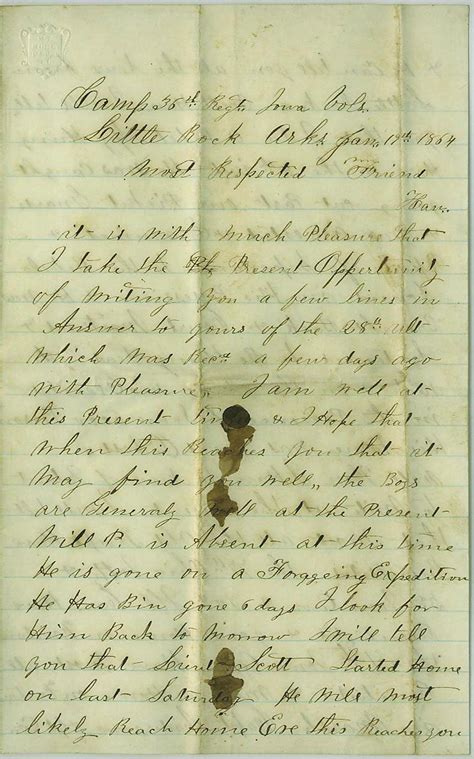 Camp 36th Regt. Iowa Vols.
Little Rock Arks. Jan. 19th 1864
Most Respected Friend
it is with much Pleasure that
I take the Present Oppertunity
of writing you a few lines in
Answer to yours of the 28th ult
which was Recd a few days ago
with Pleasure, I am well at
this Present & I Hope that
when this Reaches you that it
May find you well,, the Boys
are Generaly well at the Present
Will P. is Absent at this time
He is gone on a Foraggeing Expedition
He Has Bin gone 6 days I look for
Him Back to morrow I will tell
you that Lieut Scott Started Home
on last Saturday He will most
likely Reach Home Ere this Reaches you